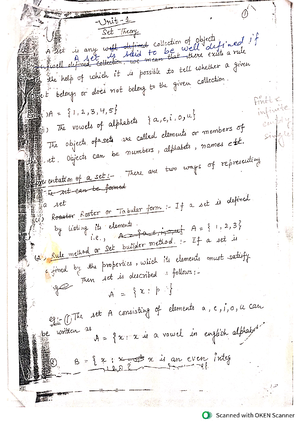 Unit-1
Set Theory
A set is any well defined collection of objects.
A set is said to be well defined if
well defined collection we mean that there exists a rule
the help of which it is possible to tell whether a given
belongs or does not belong to the given collection.
A = {1, 2, 3, 4, 5}
The vowels of alphabets {a, e, i, o, u}
The objects of sets are called elements or members of
set. Objects can be numbers, alphabets, names etc.
entation of a set:- There are two ways of representing
a set
Roster or Tabular form :- If a set is defined
by listing its elements
i.e., A = {1, 2, 3}
Rule method or Set builder method :- If a set is
defined by the properties, which its elements must satisfy
Then set is described as follows:-
A = {x : p }
(1) The set A consisting of elements a, e, i, o, u can
be written as
A = {x : x is a vowel in english alphabet
(2) B = {x : x is an even integ
Scanned with OKEN Scanner